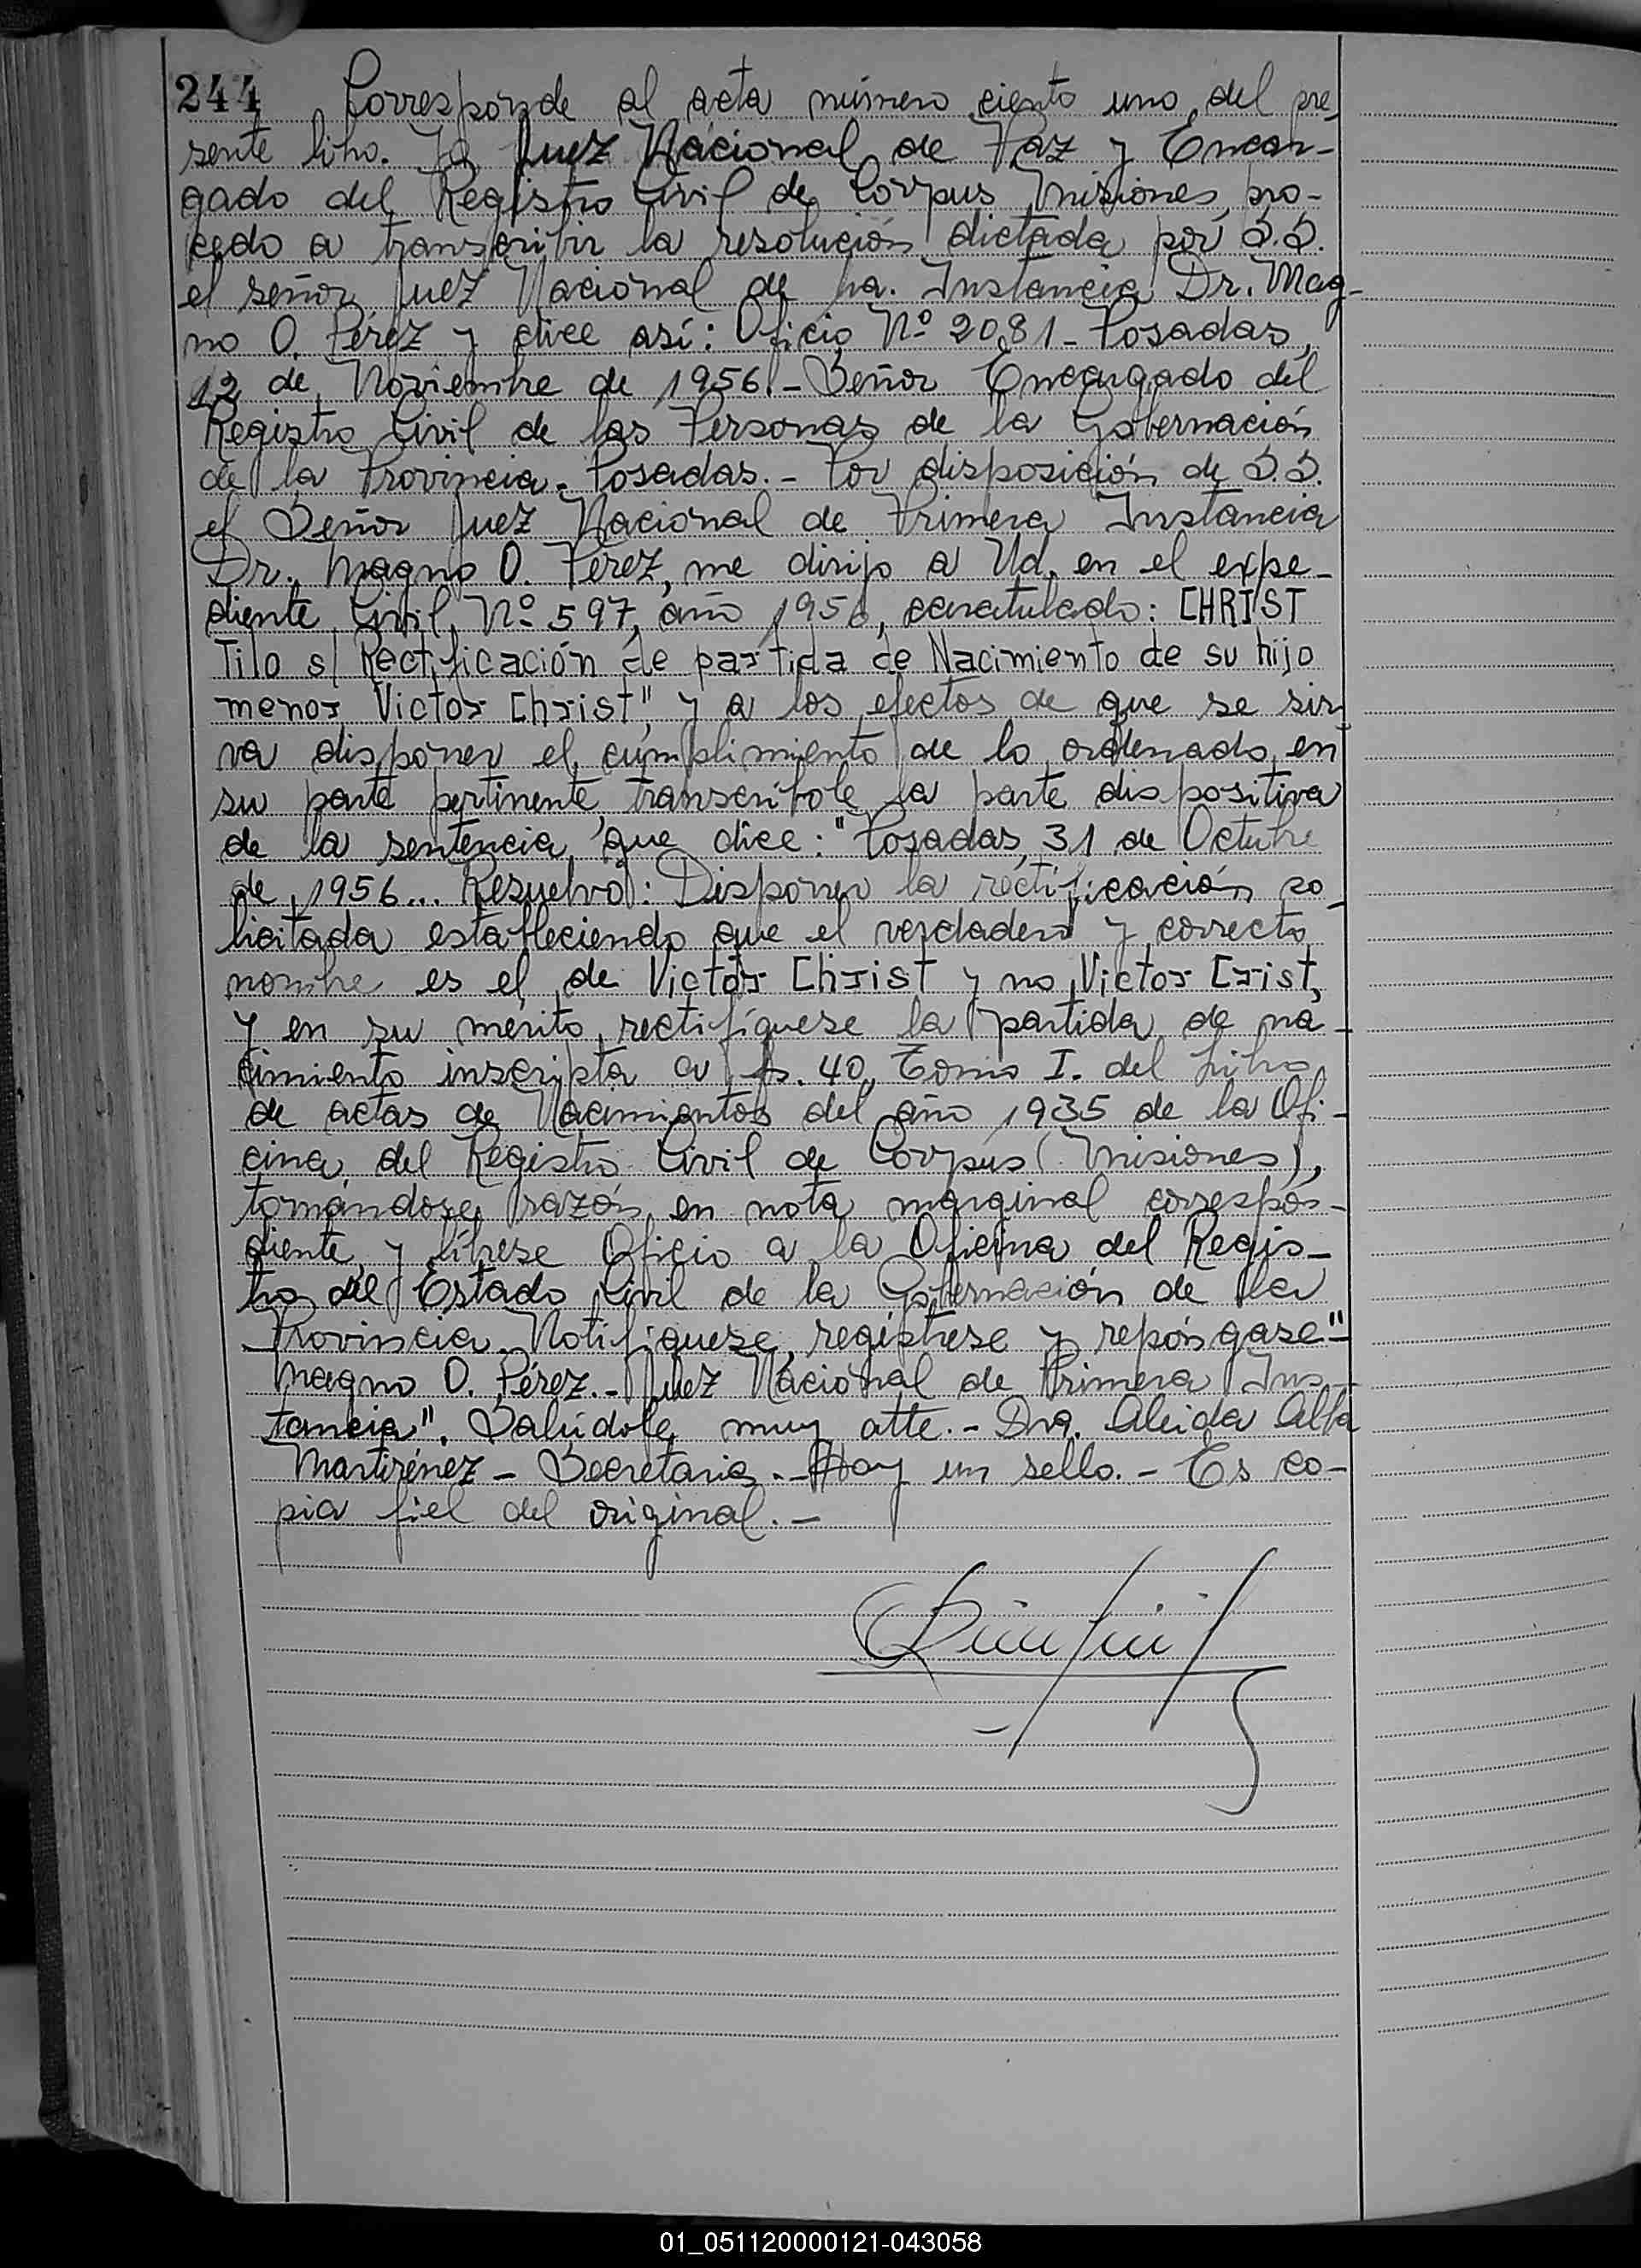 244 Corresponde al acta número ciento uno del pre
sente libro. Yo Juez Nacional de Paz y Encar-
gado del Registro Civil de Corpus, Misiones, pro-
cedo a transcribir la resolución dictada por S.S.
el señor Juez Nacional de 1ra. Instancia Dr. Mag-
no O. Pérez y dice así: Oficio Nº 2081 - Posadas,
12 de Noviembre de 1956.- Señor Encargado del
Registro Civil de las Personas de la Gobernación
de la Provincia. Posadas.- Por disposición de S.S.
el Señor Juez Nacional de Primera Instancia
Dr. Magno O. Pérez, me dirijo a Ud. en el expe-
diente Civil, Nº 597, año 1956, caratulado: CHRIST
Tilo s/ Rectificación de partida de Nacimiento de su hijo
menor Victor Christ", y a los efectos de que se sir
va disponer el cumplimiento de lo ordenado en
su parte pertinente, transcríbole la parte dispositiva
de la sentencia, que dice: "Posadas, 31 de Octubre
de 1956... Resuelvo: Disponer la rectificación so
licitada estableciendo que el verdadero y correcto
nombre es el de Victor Christ y no Victor Crist,
y en su mérito, rectifíquese la partida de na-
cimiento inscripta a fs. 40, Tomo I. del Libro
de actas de Nacimientos del año 1935 de la Ofi-
cina del Registro Civil de Corpus (Misiones),
tomándose razón en nota marginal correspon-
diente, y líbrese Oficio a la Oficina del Regis-
tro del Estado Civil de la Gobernación de la
Provincia. Notifíquese, regístrese y repóngase"-
Magno O. Pérez.- Juez Nacional de Primera Ins-
tancia". Salúdole muy atte.- Dra. Aleida Alba
Martirénez - Secretaria.- Hay un sello.- Es co-
pia fiel del original.-
01_051120000121-043058